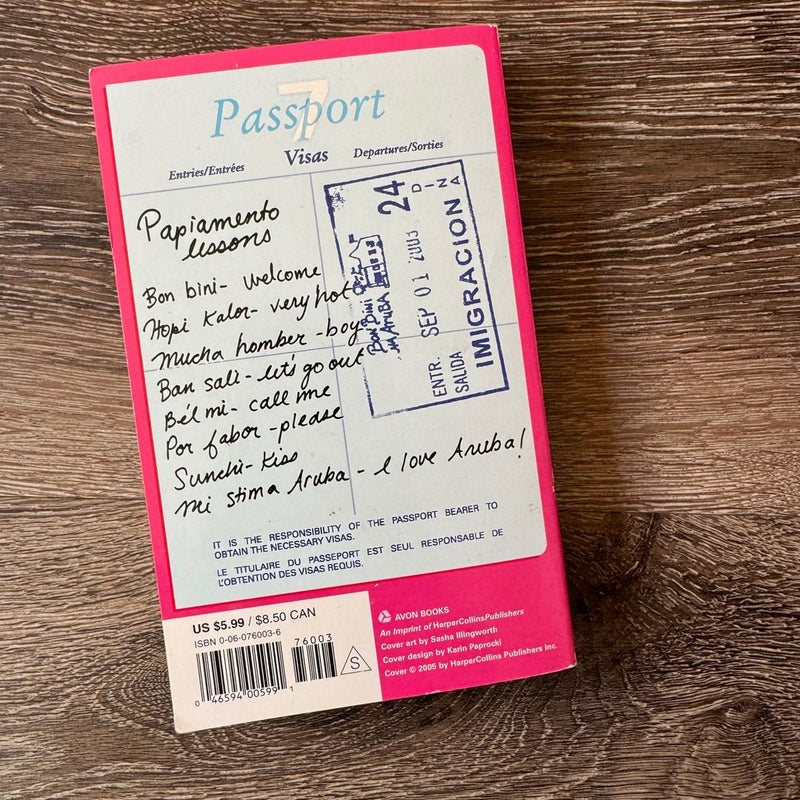 7
Passport
Entries/Entrées
Visas
Departures/Sorties
Papiamento
lessons
Bon bini- welcome
Hopi Kalor- very hot
Mucha homber -boy
Ban sali - let's go out
Bél mi- call me
Por fabor -please
Sunchi- Kiss
Mi stima Aruba - I love Aruba!
24
DINA
BON BINI
ARUBA
SEP 01 2003
ENTR.
SALIDA
IMIGRACION
IT IS THE RESPONSIBILITY OF THE PASSPORT BEARER TO
OBTAIN THE NECESSARY VISAS.
LE TITULAIRE DU PASSEPORT EST SEUL RESPONSABLE DE
L'OBTENTION DES VISAS REQUIS.
US $5.99 / $8.50 CAN
ISBN 0-06-076003-6
76003
S
0 46594 00599 1
AVON BOOKS
An Imprint of HarperCollinsPublishers
Cover art by Sasha Illingworth
Cover design by Karin Paprocki
Cover © 2005 by HarperCollins Publishers Inc.